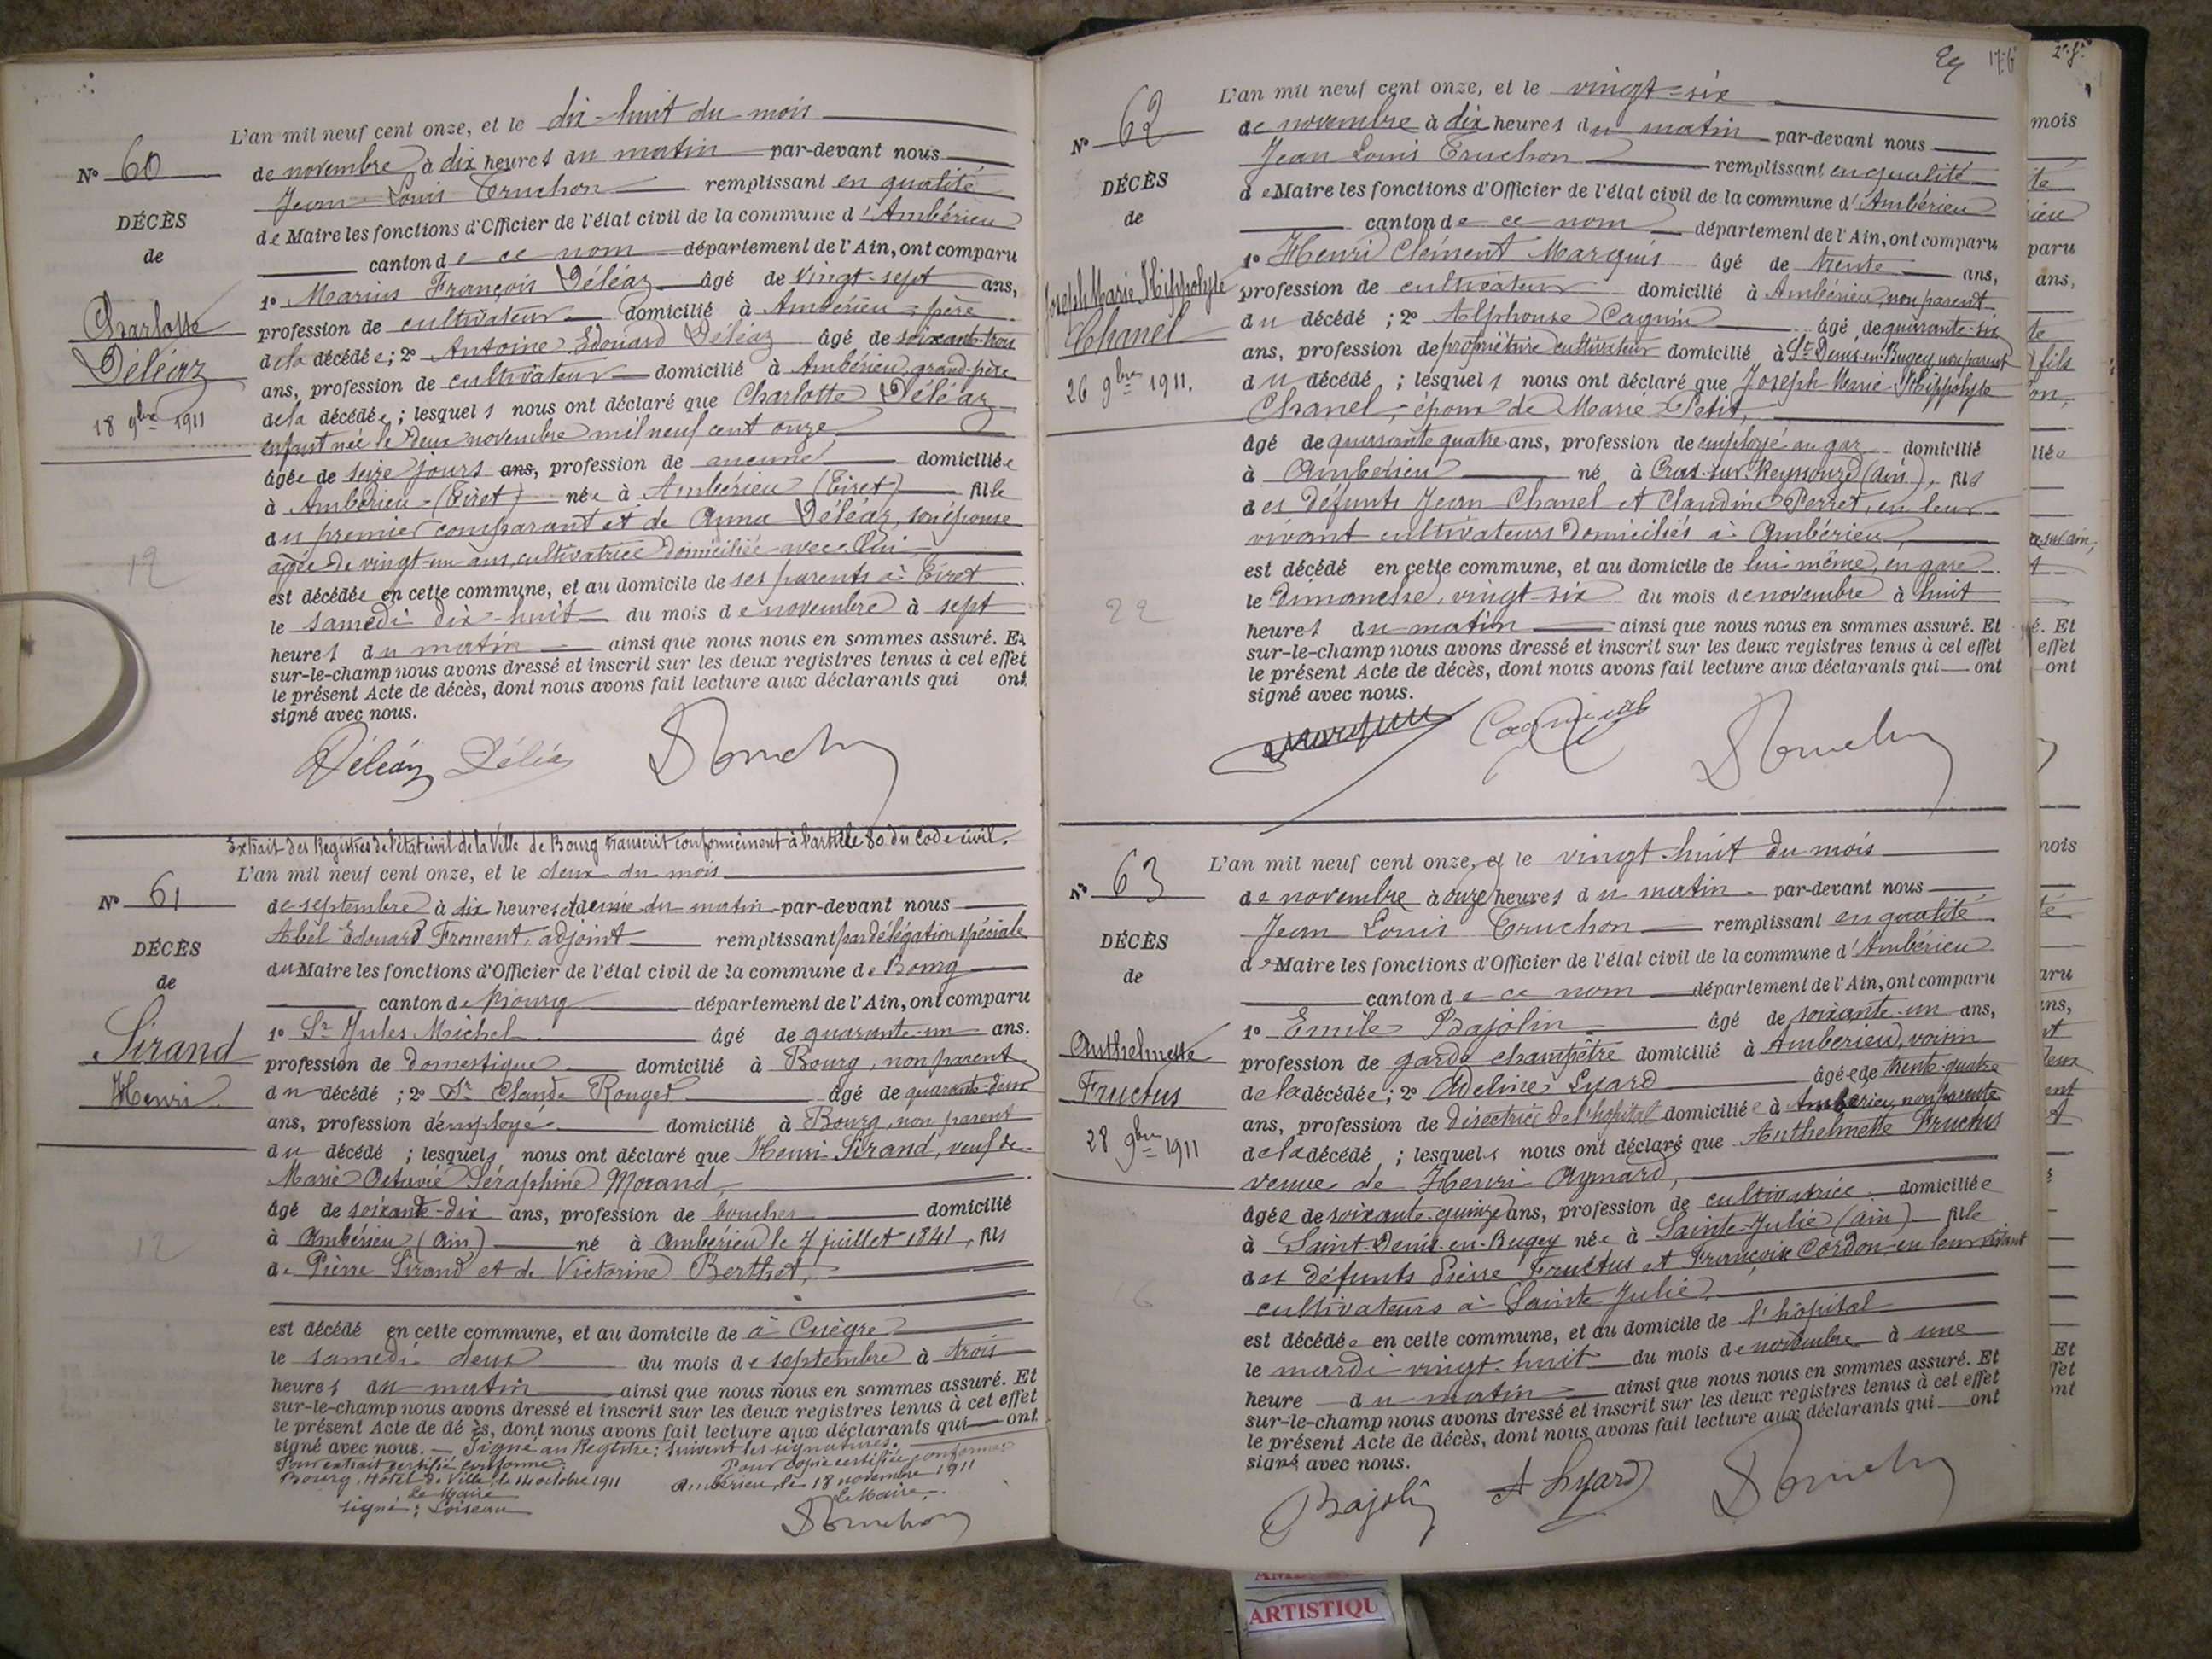 L'an mil neuf cent onze, et le dix-huit du mois
N° 60
de novembre à dix heures du matin par-devant nous
Jean-Louis Truchon remplissant en qualité
DÉCÈS
de Maire les fonctions d'Officier de l'état civil de la commune d'Ambérieu
de
canton de ce nom département de l'Ain, ont comparu
1° Marius François Déléaz âgé de vingt-sept ans,
Charlotte
profession de cultivateur domicilié à Ambérieu, père
Déléaz
de la décédée ; 2° Antoine Edouard Déléaz âgé de soixante-trois
ans, profession de cultivateur domicilié à Ambérieu grand-père
18 9bre 1911
de la décédée ; lesquels nous ont déclaré que Charlotte Déléaz
enfant née le deux novembre mil neuf cent onze,
âgée de seize jours ans, profession de aucune domiciliée
à Ambérieu (Tiret) née à Ambérieu (Tiret) fille
du premier comparant et de Anna Déléaz, son épouse
agée de vingt-un ans, cultivatrice domiciliée avec lui
12
est décédée en cette commune, et au domicile de ses parents à Tiret
le samedi dix-huit du mois de novembre à sept
heures du matin ainsi que nous nous en sommes assuré. Et
sur-le-champ nous avons dressé et inscrit sur les deux registres tenus à cet effet
le présent Acte de décès, dont nous avons fait lecture aux déclarants qui ont
signé avec nous.
Déléaz Déléaz Truchon
Extrait des Registres de l'état civil de la Ville de Bourg transcrit conformément à l'article 80 du Code civil.
L'an mil neuf cent onze, et le deux du mois
N° 61
de septembre à dix heures et demie du matin par-devant nous
Abel Edouard Froment, adjoint remplissant par délégation spéciale
DÉCÈS
du Maire les fonctions d'Officier de l'état civil de la commune de Bourg
de
canton de Bourg département de l'Ain, ont comparu
1° Sr Jules Michel âgé de quarante-un ans.
Sirand
profession de domestique domicilié à Bourg, non parent
Henri
du décédé ; 2° Sr Claude Rouget âgé de quarante-deux
ans, profession d'employé domicilié à Bourg, non parent
du décédé ; lesquels nous ont déclaré que Henri Sirand, veuf de
Marie Octavie Séraphine Morand,
âgé de soixante-dix ans, profession de boucher domicilié
à Ambérieu (Ain) né à Ambérieu le 7 juillet 1841, fils
12
de Pierre Sirand et de Victorine Berthet,
est décédé en cette commune, et au domicile de à Cuègre
le samedi deux du mois de septembre à trois
heures du matin ainsi que nous nous en sommes assuré. Et
sur-le-champ nous avons dressé et inscrit sur les deux registres tenus à cet effet
le présent Acte de dé ès, dont nous avons fait lecture aux déclarants qui ont
signé avec nous. — Signé au Registre : suivent les signatures.
Pour extrait certifié conforme : Pour copie certifiée conforme :
Bourg, Hôtel de Ville, le 14 octobre 1911 Ambérieu, le 18 novembre 1911
Le Maire Le Maire,
signé : Loiseau Truchon
29 176
L'an mil neuf cent onze, et le vingt-six
N° 62
de novembre à dix heures du matin par-devant nous
Jean Louis Truchon remplissant en qualité
DÉCÈS
de Maire les fonctions d'Officier de l'état civil de la commune d'Ambérieu
de
canton de ce nom département de l'Ain, ont comparu
1° Henri Clément Marquis âgé de trente ans,
Joseph Marie Hippolyte
profession de cultivateur domicilié à Ambérieu, non parent
Chanel
du décédé ; 2° Alphonse Cagnin âgé de quarante-six
ans, profession de propriétaire cultivateur domicilié à St Denis-en-Bugey, non parent
26 9bre 1911.
du décédé ; lesquels nous ont déclaré que Joseph Marie Hippolyte
Chanel, époux de Marie Petit,
âgé de quarante quatre ans, profession de employé au gaz domicilié
à Ambérieu né à Cras-sur-Reyssouze (Ain), fils
des défunts Jean Chanel et Claudine Perret, en leur
vivant cultivateurs domiciliés à Ambérieu,
est décédé en cette commune, et au domicile de lui-même, en gare
22
le dimanche, vingt-six du mois de novembre à huit
heures du matin ainsi que nous nous en sommes assuré. Et
sur-le-champ nous avons dressé et inscrit sur les deux registres tenus à cet effet
le présent Acte de décès, dont nous avons fait lecture aux déclarants qui ont
signé avec nous.
Marquis Truchon
L'an mil neuf cent onze, et le vingt-huit du mois
N° 63
de novembre à onze heures du matin par-devant nous
Jean Louis Truchon remplissant en qualité
DÉCÈS
de Maire les fonctions d'Officier de l'état civil de la commune d'Ambérieu
de
canton de ce nom département de l'Ain, ont comparu
1° Emile Bajolin âgé de soixante-un ans,
Anthelmette
profession de garde champêtre domicilié à Ambérieu, voisin
Fructus
de la décédée ; 2° Adeline Luard âgée de trente-quatre
ans, profession de directrice de l'hôpital domiciliée à Ambérieu, non parente
28 9bre 1911
de la décédé ; lesquels nous ont déclaré que Anthelmette Fructus
veuve de Henri Aymard,
âgée de soixante-quinze ans, profession de cultivatrice domiciliée
à Saint-Denis-en-Bugey née à Sainte-Julie (Ain) fille
des défunts Pierre Fructus et Françoise Cordon, en leur vivant
16
cultivateurs à Sainte Julie
est décédée en cette commune, et au domicile de l'hôpital
le mardi vingt-huit du mois de novembre à une
heure du matin ainsi que nous nous en sommes assuré. Et
sur-le-champ nous avons dressé et inscrit sur les deux registres tenus à cet effet
le présent Acte de décès, dont nous avons fait lecture aux déclarants qui ont
signé avec nous.
Bajolin A Luard Truchon
ARTISTIQU